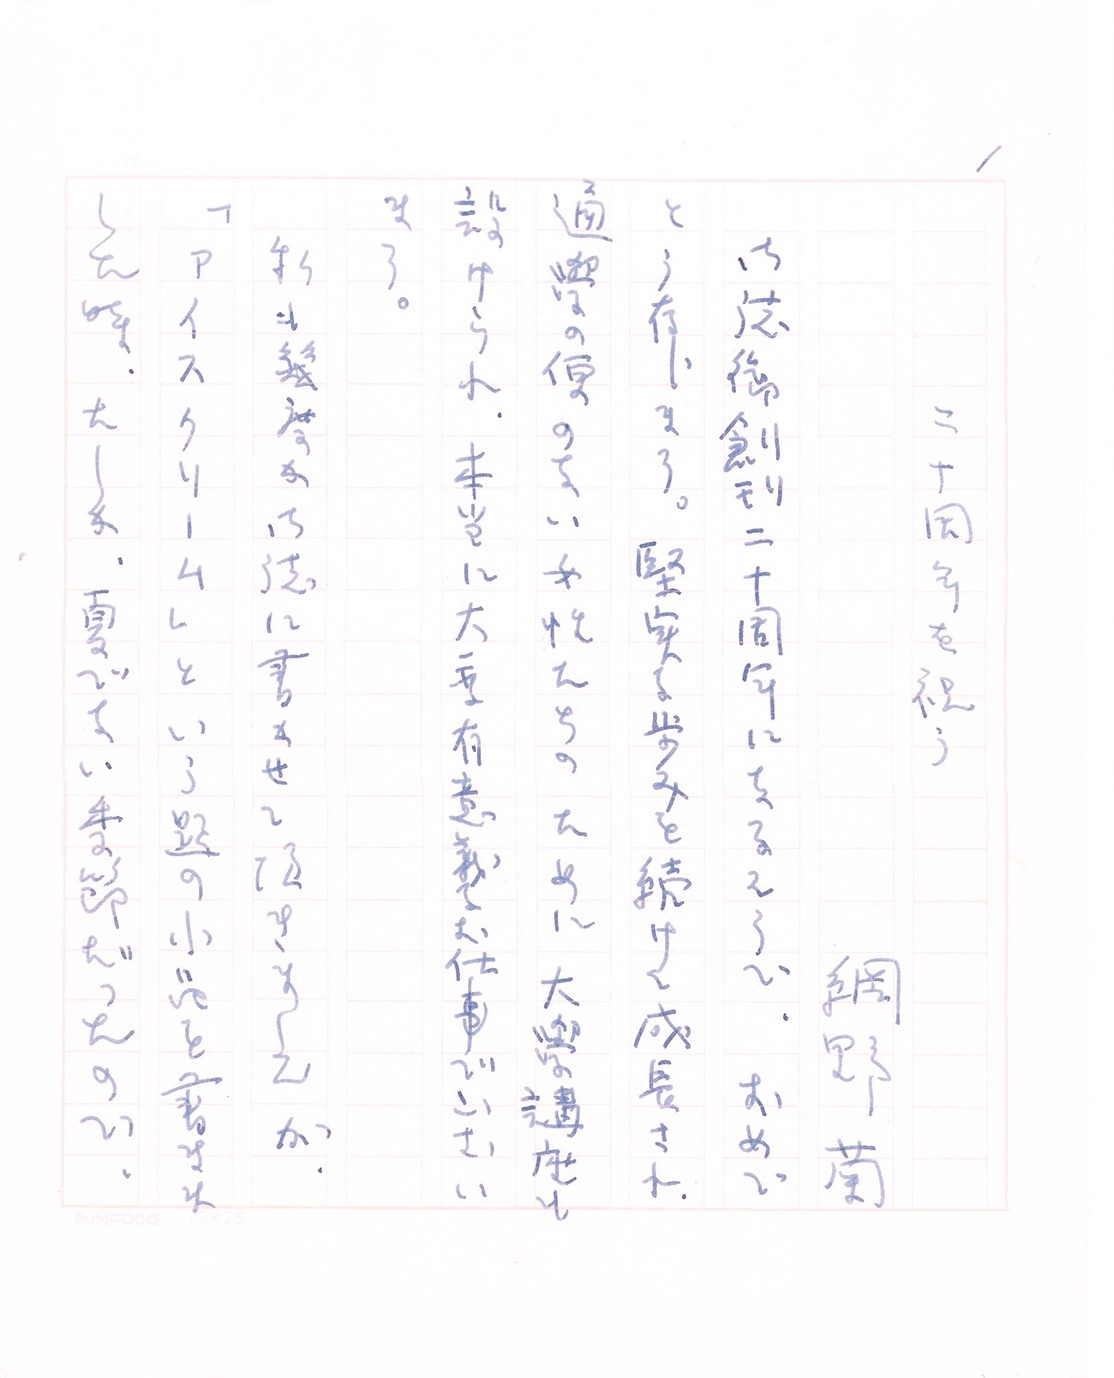 1
二十周年を祝う
網野菊
御誌御創刊二十周年になるそうで、おめで
とう存じます。堅実な歩みを続けて成長され、
通学の便のない女性たちのために大学講座も
設けられ、本当に大変有意義なお仕事でござい
ます。
私も幾度か御誌に書かせて頂きましたが、
「アイスクリーム」という題の小品を書きま
した時、たしか、夏でない季節だったので、
SUMPODO